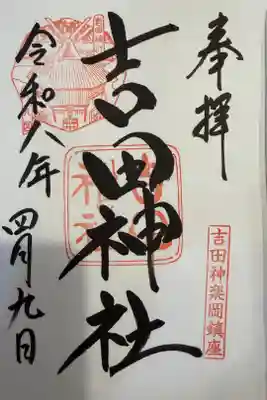 奉拝
吉田神楽岡鎮座
吉田神社
令和八年
四月九日